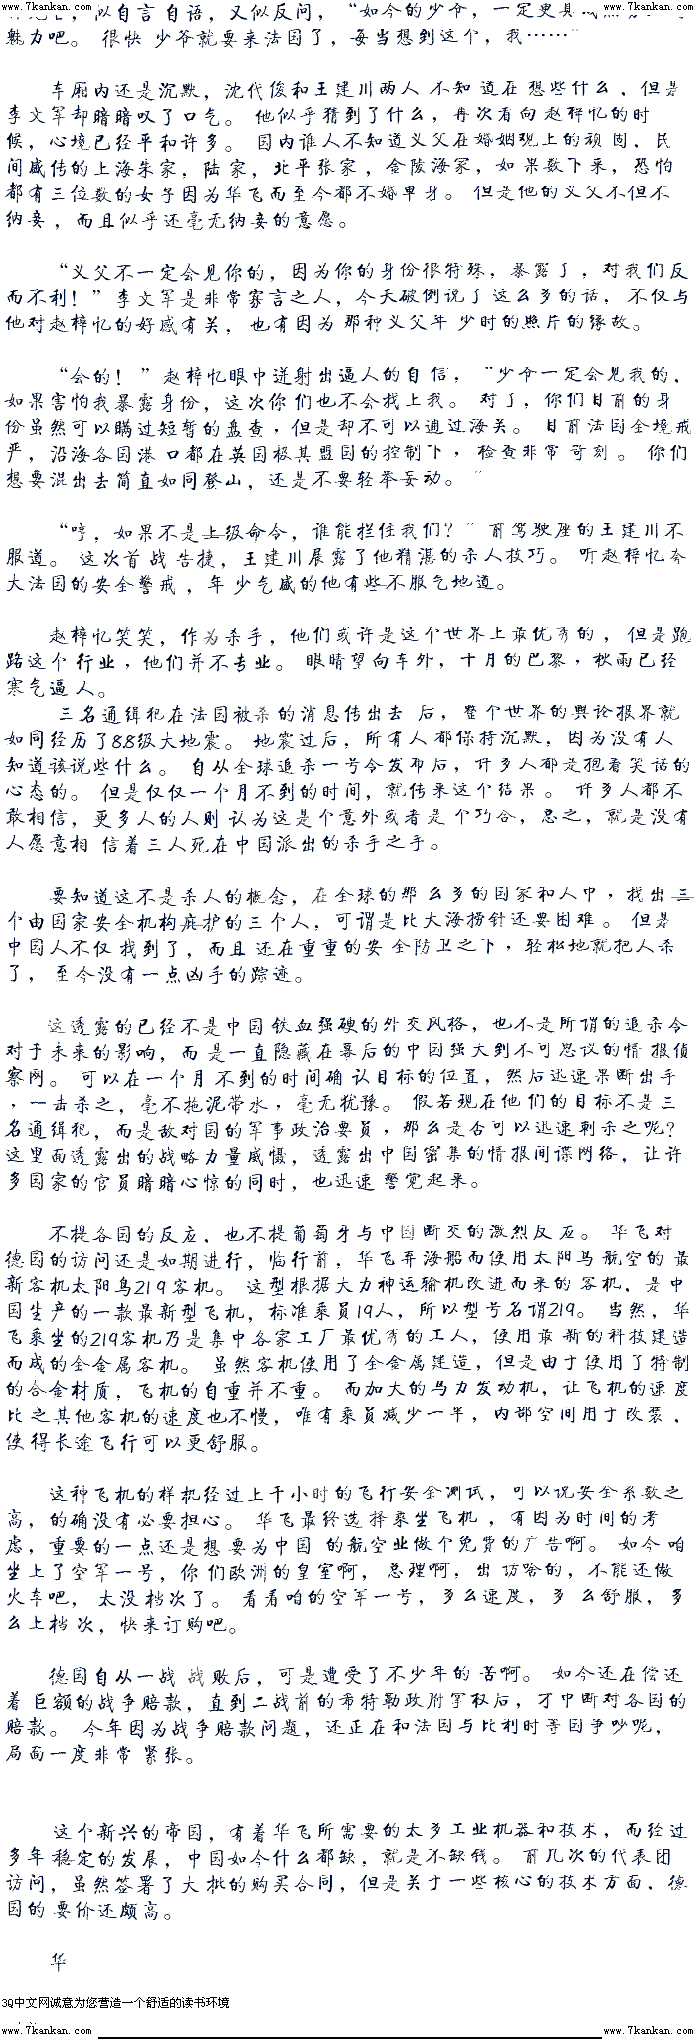 www.7kankan.com www.7kankan.com
似自言自语，又似反问，“如今的少爷，一定更具
魅力吧。 很快 少爷就要来法国了，每当想到这个，我……”
车厢内还是沉默，沈代俊和王建川两人 不知 道在 想些什么，但是
李文军却暗暗叹了口气。 他似乎猜到了什么，再次看向 赵梓忆的时
候，心境已经平和许多。 国内谁人不知道义父在婚姻观上的顽 固，民
间盛传的上海朱家，陆 家，北平张家，金陵海家，如 果数下来，恐怕
都有三位数的女子因为华飞而至今都不婚单身。 但是他的义父不但不
纳妾，而且似乎还毫无纳妾的意愿。
“义父不一定会见你的，因为你的身份很特殊，暴露了，对我们反
而不利！”李文军是非常寡言之人，今天破例说了这么多的话，不仅与
他对赵梓忆的好感有关，也有因为 那种义父年 少时的照片的缘故。
“会的！”赵梓忆眼中迸射出逼人的自信，“少爷一定会见我的，
如果害怕我暴露身份，这次你们也不会找上我。 对了，你们目前的身
份虽然可以瞒过短暂的盘查，但是却不可以通过海关。 目前法国全境戒
严，沿海各国港 口都在英国极其盟国的控制下，检查非常苛刻。 你们
想要混出去简直如同登山，还是不要轻举妄动。”
“哼，如果不是上级命令，谁能拦住我们？”前驾驶座的王建川不
服道。 这次首战告捷，王建川展露了他精湛的杀人技巧。 听赵梓忆夸
大法国的安全警戒，年少气盛的他有些不服气地道。
赵梓忆笑笑，作为杀手，他们或许是这个世界上最优秀的，但是跑
路这个 行业，他们并不专业。 眼睛望向车外，十月的巴黎，秋雨已经
寒气逼人。
三名通缉犯在法国被杀的消息传出去 后，整个世界的舆论报界就
如同经历了8.8级大地震。 地震过后，所有人都保持沉默，因为没有人
知道该说些什么。 自从全球追杀一号令发布后，许多人都是抱着笑话的
心态的。 但是仅仅一个月不到的时间，就传来这个结果。 许多人都不
敢相信，更多人的人则 认为这是个意外或者是 个巧合，总之，就是没有
人愿意相 信着三人死在中国派出的杀手之手。
要知道这不是杀人的概念，在全球的那 么多的国家和人中，找出三
个由国家安全机构庇护的三个人，可谓是比大海捞针还要困难。 但是
中国人不仅 找到了，而且 还在重重的安 全防卫之下，轻松地就把人杀
了，至今没有一点凶手的踪迹。
这透露的已经不是中国铁血强硬的外交风格，也不是所谓的追杀令
对于未来的影响，而 是一直隐藏在幕后的中国强大到不可思议的情 报侦
察网。 可以在一个月 不到的时间确 认目标的位置，然后迅速果断出手
，一击杀之，毫不拖泥带水，毫无犹豫。 假若现在他们的目标不是三
名通缉犯，而是敌对国的军事政治要员，那么是否可以迅速刺杀之呢？
这里面透露出的战略力量威慑，透露出中国密集的情报间谍网络，让许
多国家的官员暗暗心惊的同时，也迅速警觉起来。
不提各国的反应，也不提葡萄牙与中国断交的激烈反应。 华飞对
德国的访问还是如期进行，临行前，华飞弃海船而使用太阳鸟航空的 最
新客机太阳鸟219客机。 这型根据大力神运输机改进而来的客机，是中
国生产的一款最新型飞机，标准乘员19人，所以型号名谓219。 当然，华
飞乘坐的219客机乃是集中各家工厂最优秀的工人，使用最 新的科技建造
而成的全金属客机。 虽然客机使用了全金属建造，但是由于使用了特制
的合金材质，飞机的自重并不重。 而加大的马力发动机，让飞机的速度
比之其他客机的速度也不慢，唯有乘员减少一半，内部空间用于改装，
使得长途飞行可以更舒服。
这种飞机的样机经过上千小时的飞行安全测试，可以说安全系数之
高，的确没有必要担心。 华飞最终选择乘坐飞机，有因为时间的考
虑，重要的一点还是想要为中国 的航空业做个免费的广告啊。 如今咱
坐上了空军一号，你们欧洲的皇室啊，总理啊，出访啥的，不能还做
火车吧，太没档次了。 看看咱的空军一号，多么速度，多 么舒服，多
么上档 次，快来订购吧。
德国自从一战 战败后，可是遭受了不少年的苦啊。 如今还在偿还
着巨额的战争赔款，直到二战前的希特勒政府掌权后，才中断对各国的
赔款。 今年因为战争赔款问题，还正在和法国与比利时等国争吵呢，
局面一度非常 紧张。
这个新兴的帝国，有着华飞所需要的太多工业机器和技术，而经过
多年稳定的发展，中国如今什么都缺，就是不缺钱。 前几次的代表团
访问，虽然签署了大批的购买合同，但是关于一些核心的技术方面，德
国的 要价还颇高。
华
3Q中文网诚意为您营造一个舒适的读书环境
www.7kankan.com www.7kankan.com